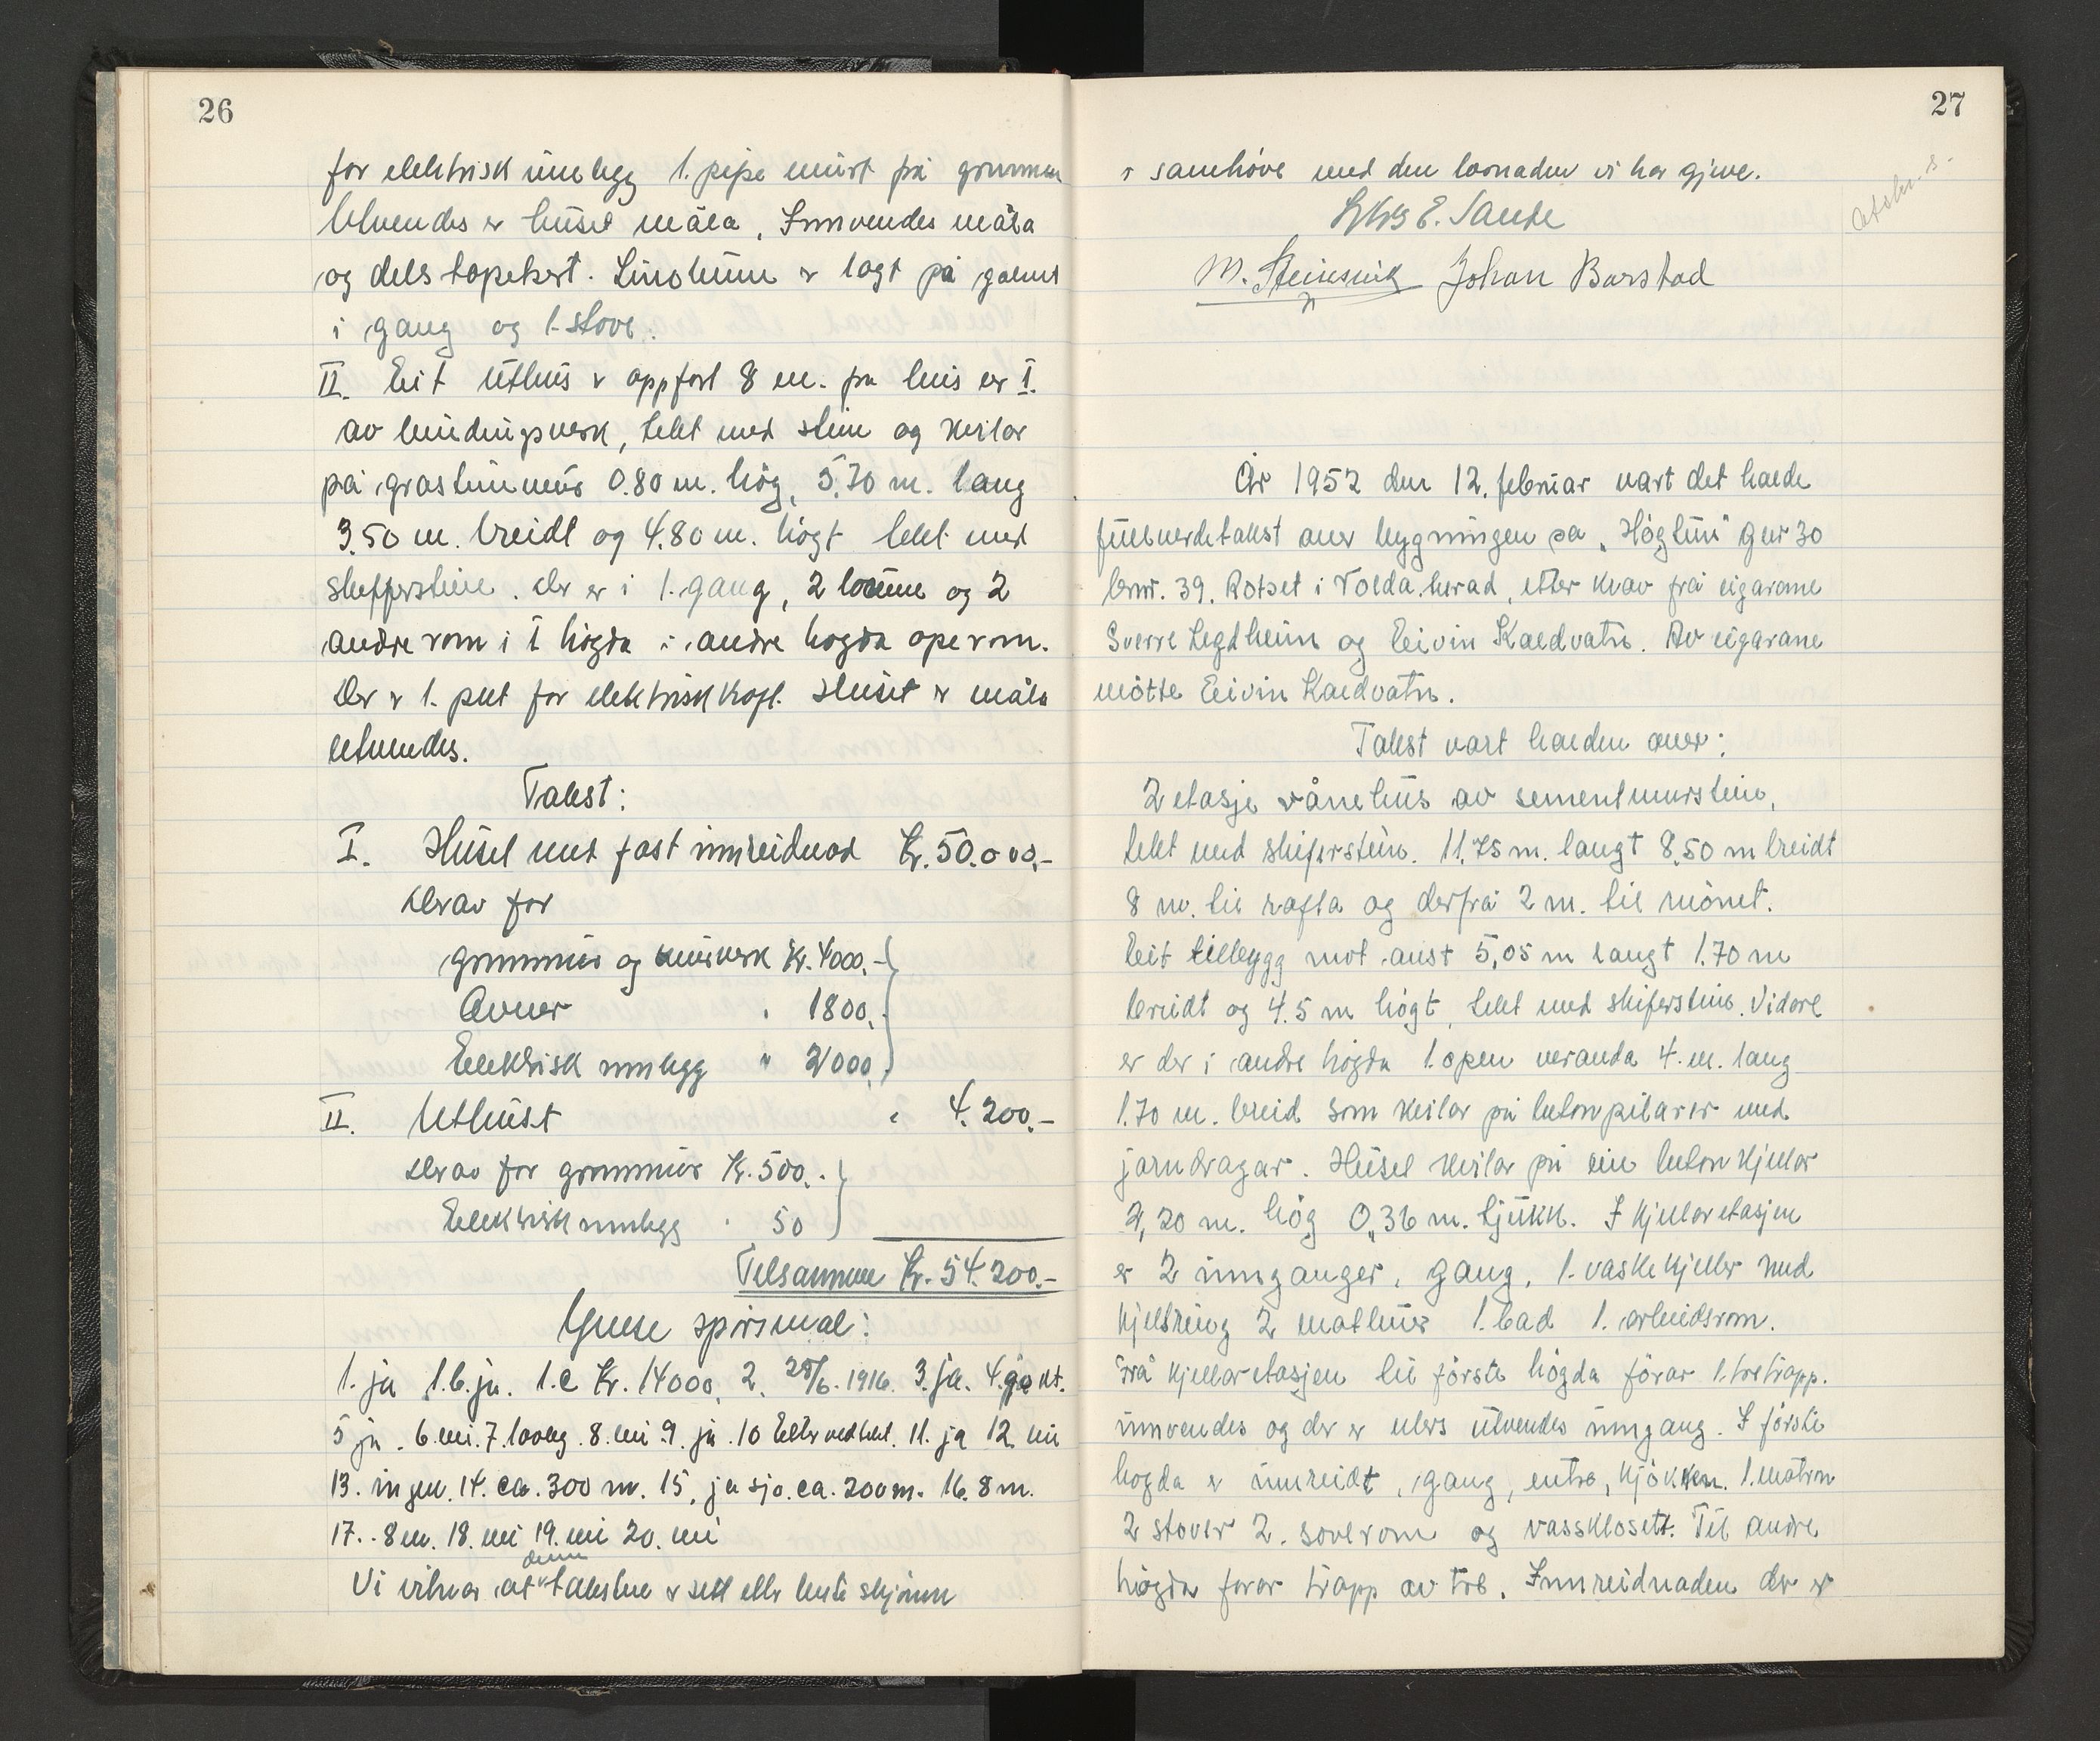 26
for elektrisk innlegg 1. pipe murt frå grunnen
Utvendes er huset måla, Innvendes måla
og dels tapetsert. Linoleum er lagt på golvet
i gang og 1. stove.
II. Eit Uthus er oppført 8 m. frå hus nr I.
av bindingsverk, tekt med stein og kvilar
på gråsteinmur 0.80 m. høg, 5.70 m. lang
3.50 m. breidt og 4.80 m. høgt tekt med
skifferstein. Der er i 1. gang, 2 lemme og 2
andre rom i I høgda i andre høgda ope rom.
Der er 1. putt for elektrisk kraft. Huset er måla
utvendes.
Takst:
I. Huset med fast innreidnad Kr. 50.000,-
Derav for
grunnmur og murverk Kr. 4000.-
Ovner " 1800.-
Elektrisk innlegg " 2000.-
II. Uthuset " 4.200.-
Derav for grunnmur Kr. 500.-
Elektrisk innlegg " 50
Tilsammen Kr. 54.200.-
Ymse spørsmål:
1. ja 1.b. ja. 1.c Kr. 14000, 2. 28/6.-1916. 3. ja. 4. godt.
5 ja. 6. nei. 7. lovleg. 8. nei. 9. ja. 10 Etter vedtekt. 11. ja 12. nei
13. ingen. 14. ca. 300 m. 15. ja sjø. ca. 200 m. 16. 8 m.
17. 8 m. 18. nei 19. nei 20. nei
denne
Vi vitnar at taksten er sett etter beste skjønn
27
i samhøve med den lovnaden vi har gjeve.
E. Sande
M. Steinsvik Johan Barstad
År 1952 den 12. februar vart det halde
fullverdetakst over bygningen på "Høgtun" gnr 30
bnr. 39. Rotset i Volda herad, etter krav frå eigarane
Sverre Legdheim og Eivin Kaldvatn. Av eigarane
møtte Eivin Kaldvatn.
Takst vart halden over:
2 etasje vånehus av sementmurstein,
tekt med skiferstein. 11,75 m. langt 8,50 m breidt
8 m. til rafta og derfrå 2 m. til mønet.
Eit tillegg mot aust 5,05 m langt 1.70 m
breidt og 4.5 m høgt, tekt med skiferstein. Vidare
er der i andre høgda 1. open veranda 4. m. lang
1.70 m. breid som kvilar på betonpilarer med
jarndragar. Huset kvilar på ein betonkjellar
2,20 m. høg 0,36 m. tjukk. I kjellaretasjen
er 2 innganger, gang, 1. vaskekjeller med
kjellring 2 matbuer 1. bad 1. arbeidsrom.
Frå kjellaretasjen til første høgda förar 1. tretrapp.
innvendes og der er elers utvendes inngang. I første
høgda er innreidt, gang, entre, kjøkken. 1. matrom
2 stover 2. soverom og vassklosett. Til andre
høgda førar trapp av tre. Innreidnaden der er